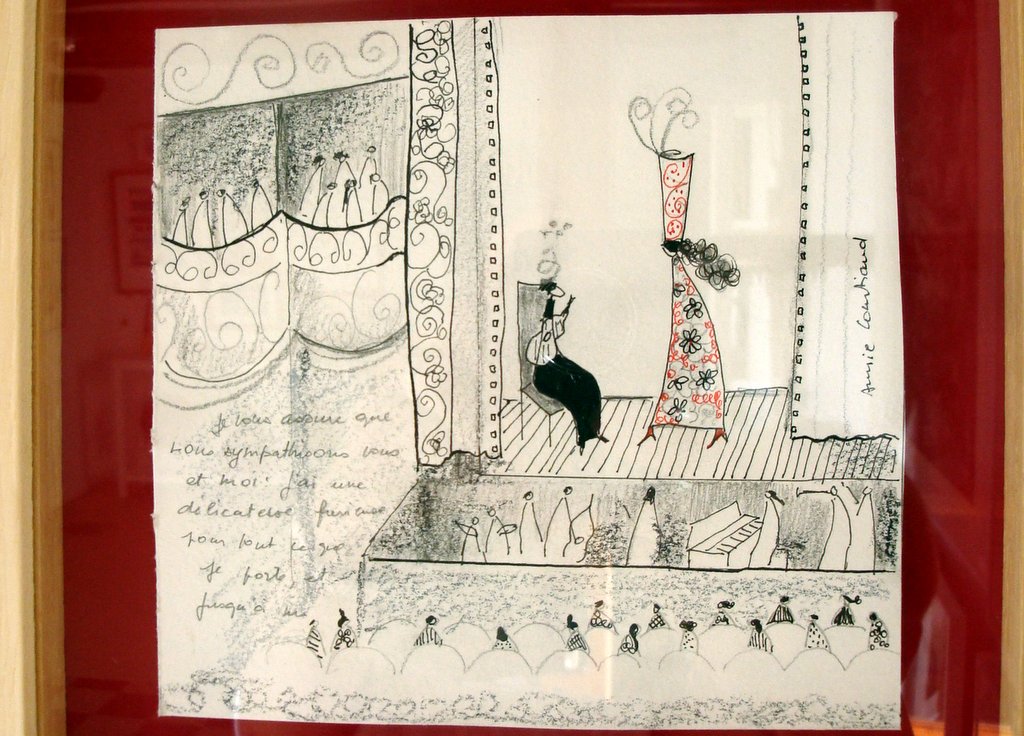 Je vous assure que
nous sympathisons vous
et moi: j'ai une
délicatesse furieuse
pour tout ce que
je porte, et
jusqu'à
Annie Courtiaud